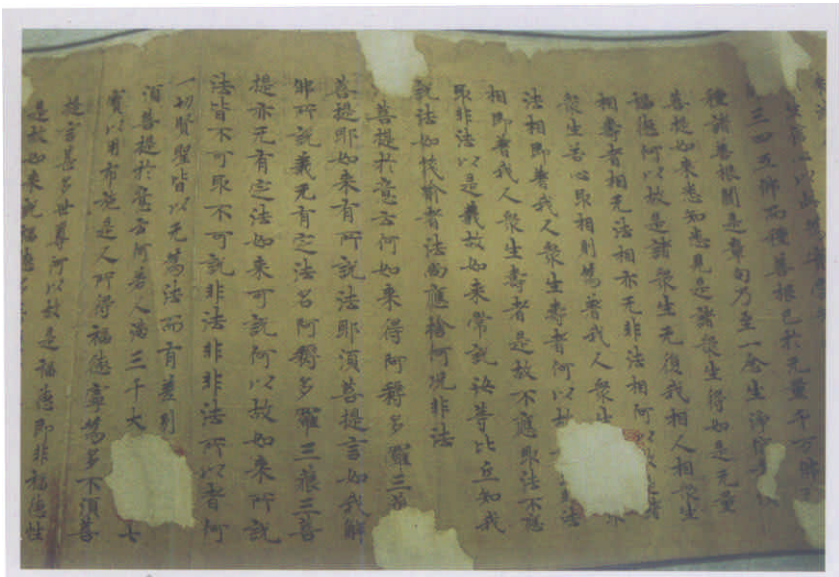 生信心以此為實
三四五佛而種善根已於无量千万佛
種諸善根聞是章句乃至一念生淨信
菩提如來悉知悉見是諸衆生得如是无量
福德何以故是諸衆生无復我相人相衆生
相壽者相无法相亦无非法相何以故
衆生若心取相則為著我人衆生
法相即著我人衆生壽者何以故 法
相即著我人衆生壽者是故不應取法不應
取非法以是義故如來常說汝等比丘知我
說法如筏喻者法尚應捨何況非法
菩提於意云何如來得阿耨多羅三藐
菩提耶如來有所說法耶須菩提言如我解
佛所說義无有定法名阿耨多羅三藐三菩
提亦无有定法如來可說何以故如來所說
法皆不可取不可說非法非非法所以者何
一切賢聖皆以无為法而有差別
須菩提於意云何若人滿三千大 七
寶以用布施是人所得福德寧為多不須菩
提言甚多世尊何以故是福德即非福德性
是故如來說福德多